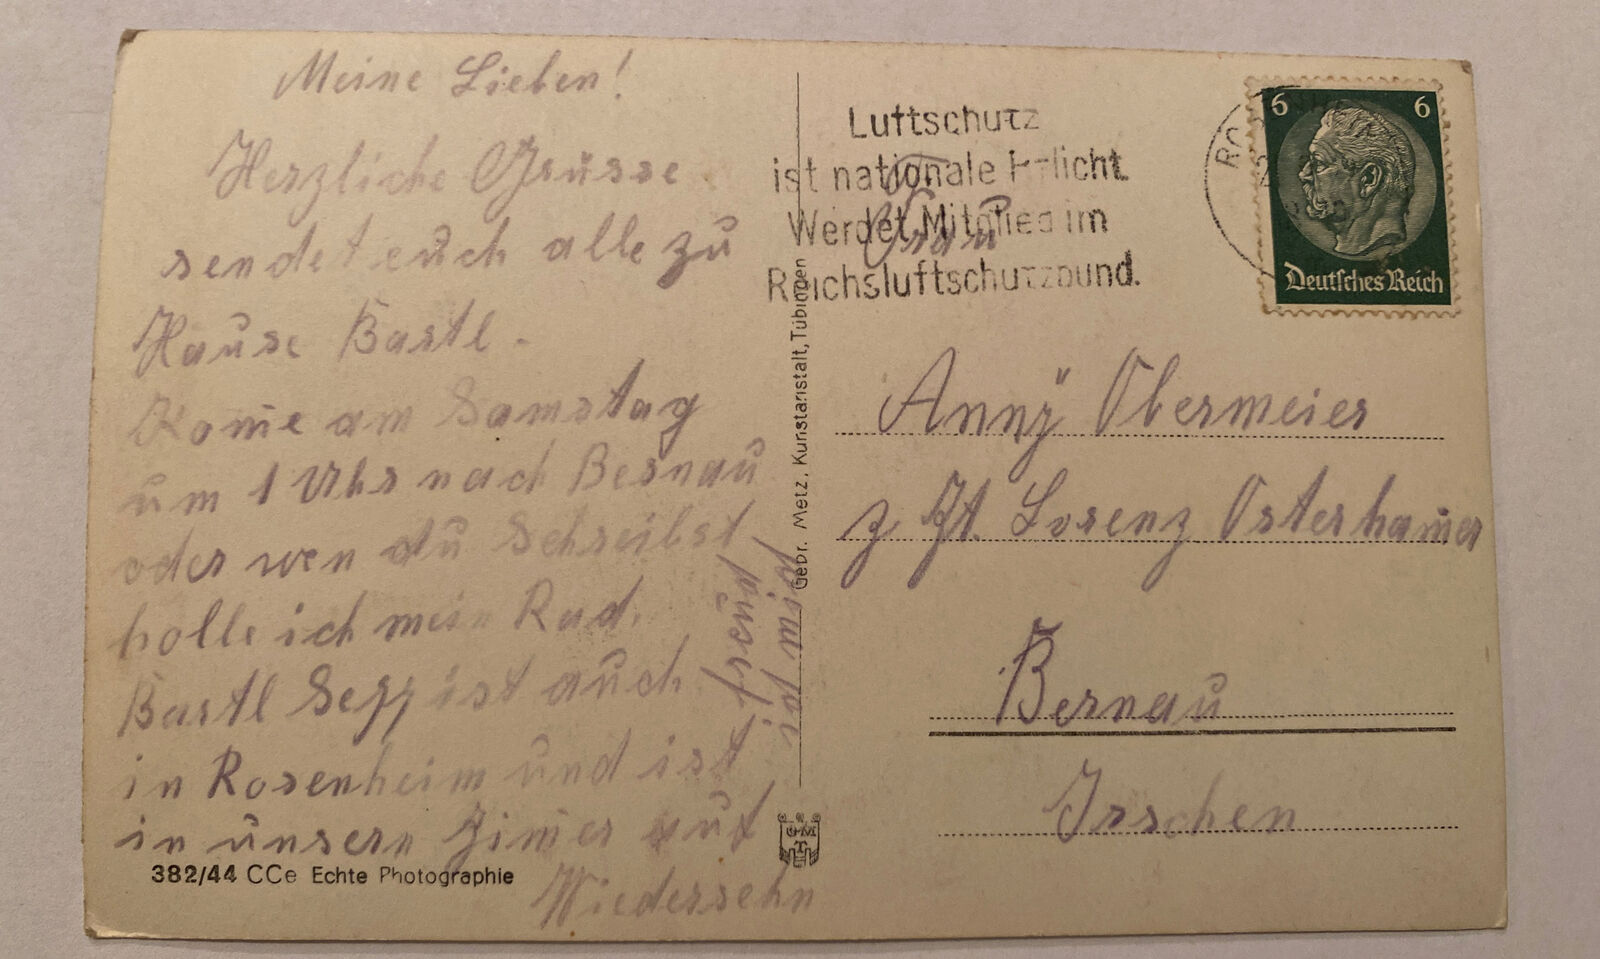 Meine Lieben!
Herzliche Grüsse
sendet euch alle zu
Hause Bartl.
Kom̄e am Samstag
um 1 Uhr nach Bernau
oder wen du Schreibst
holle ich mein Rad.
Bartl Sepp ist auch
in Rosenheim und ist
in unsern Zim̄er auf
Wiedersehn
freund
ist mir
Luftschutz
ist nationale Pflicht.
Werdet Mitglied im
Reichsluftschutzbund.
6 6
Deutsches Reich
Gebr. Metz, Kunstanstalt, Tübingen
Frau
Anny Obermeier
z. Zt. Lorenz Osterham̄er
Bernau
Irschen
GMT
382/44 CCe Echte Photographie